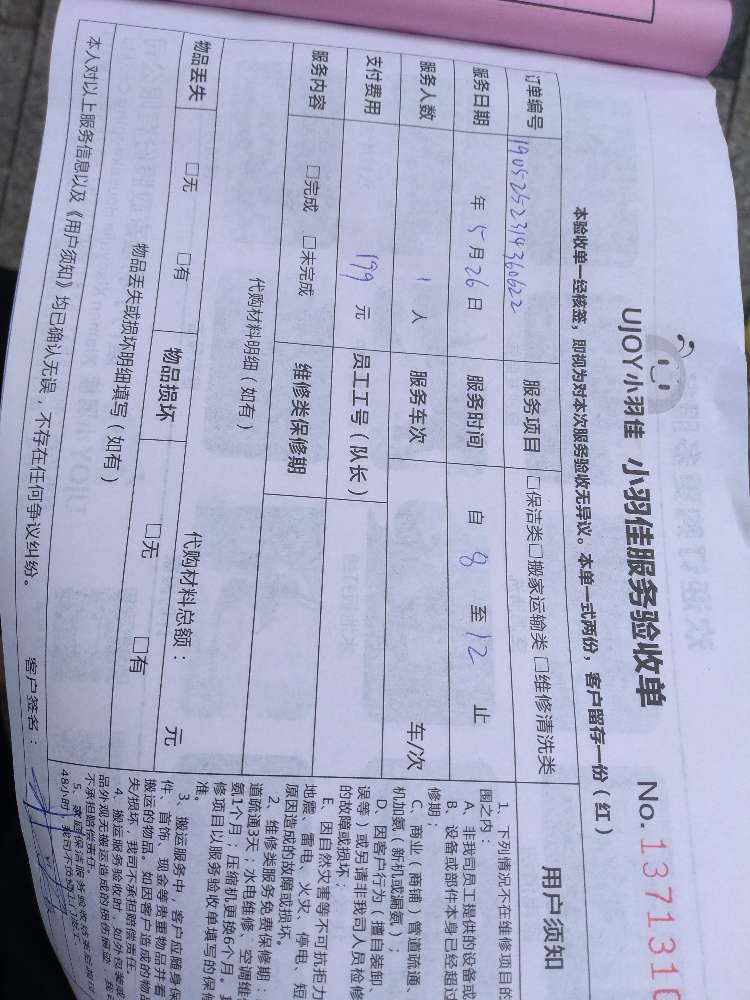 UJOY小羽佳 小羽佳服务验收单 No. 1371310
本验收单一经核签，即视为对本次服务验收无异议。本单一式两份，客户留存一份（红）
订单编号 190525231436062​2 服务项目 □保洁类□搬家运输类 □维修清洗类
服务日期 年 5 月 26 日 服务时间 自 8 至 12 止
服务人数 1 人 服务车次 车/次
支付费用 199 元 员工工号（队长）
服务内容 □完成 □未完成 维修类保修期
代购材料明细（如有） 代购材料总额： 元
物品丢失 □无 □有 物品损坏 □无 □有
物品丢失或损坏明细填写（如有）
本人对以上服务信息以及《用户须知》均已确认无误，不存在任何争议纠纷。 客户签名：
用户须知
1、下列情况不在维修项目的
围之内：
A、非我司员工提供的设备或
B、设备或部件本身已经超过
修期；
C、商业（商铺）管道疏通、
机加氨（新机或漏氨）；
D、因客户行为（擅自装卸、
误等）或另请非我司人员检修
的故障或损坏；
E、因自然灾害等不可抗拒力
地震、雷电、火灾、停电、短
原因造成的故障或损坏。
2、维修类服务免费保修期：
道疏通3天；水电维修、空调维
氨1个月；压缩机更换6个月。
修项目以服务验收单填写的保修
准。
3、搬运服务中，客户应随身保
件、首饰、现金等贵重物品并看
搬运的物品。如因客户造成的物品
失损坏，我司不承担赔偿责任。
4、搬运服务验收时，如外包装或
品外观无搬运造成的损伤痕迹，我司
不承担赔偿责任。
5、家庭保洁服务验收
48小时，我司不负责上门返工